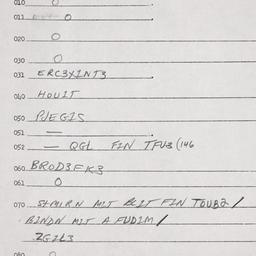 010 O
011 O
020 O
030 O
031 ERC3XINT3
040 HOUIT
050 PJEGIS
051 —
052 — QGL FIN TFU3 (146
060 BROD3FK3
061 O
070 MIT BLIT FIN TOUB2/
BINDN MIT A FUDIM/
ZGIL3
080 O